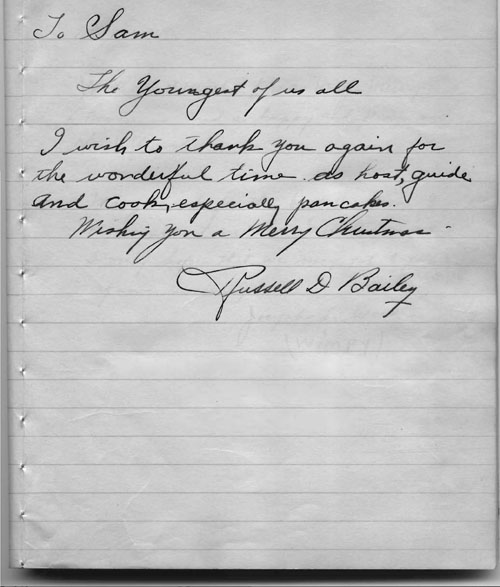 To Sam
The Youngest of us all
I wish to thank you again for
the wonderful time as host, guide
and cook, especially pancakes.
Wishing you a Merry Christmas
Russell D Bailey
(Wimpy)